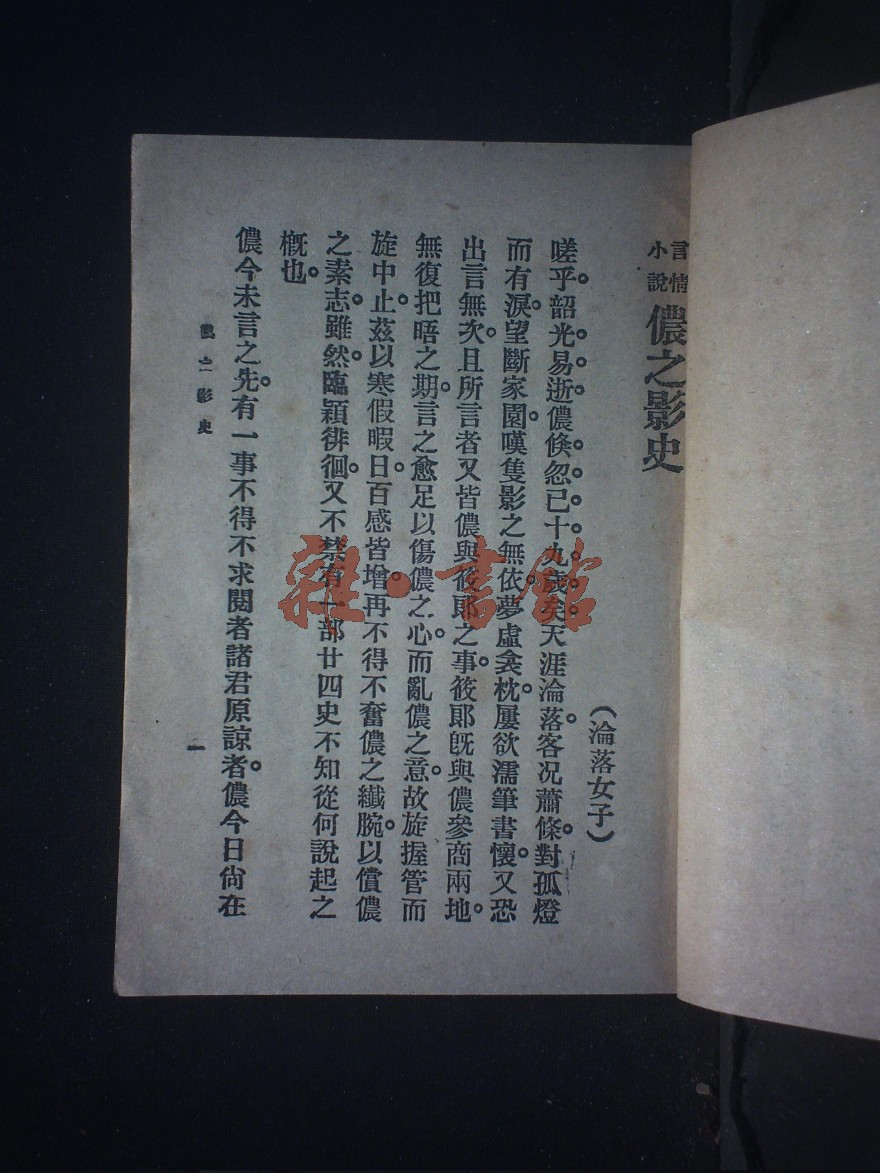 言情小說
儂之影史
（淪落女子）
嗟乎。韶光易逝。儂倏忽已十九歲矣。天涯淪落。客况蕭條。對孤燈
而有淚。望斷家園。嘆隻影之無依。夢虛衾枕。屢欲濡筆書懷。又恐
出言無次。且所言者又皆儂與筱郎之事。筱郎旣與儂參商兩地。
無復把晤之期。言之愈足以傷儂之心。而亂儂之意。故旋握管而
旋中止。茲以寒假暇日。百感皆增。再不得不奮儂之纖腕。以償儂
之素志。雖然。臨穎徘徊。又不禁有一部廿四史不知從何說起之
槪也。
儂今未言之先。有一事不得不求閱者諸君原諒者。儂今日尙在
儂之影史
一
雜·書館